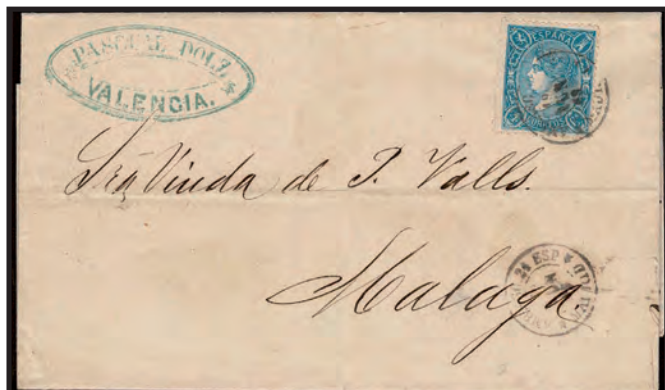 PASCUAL DOLZ
VALENCIA.
ESPAÑA
Sra Viuda de P. Valls.
Malaga.
24 ESP